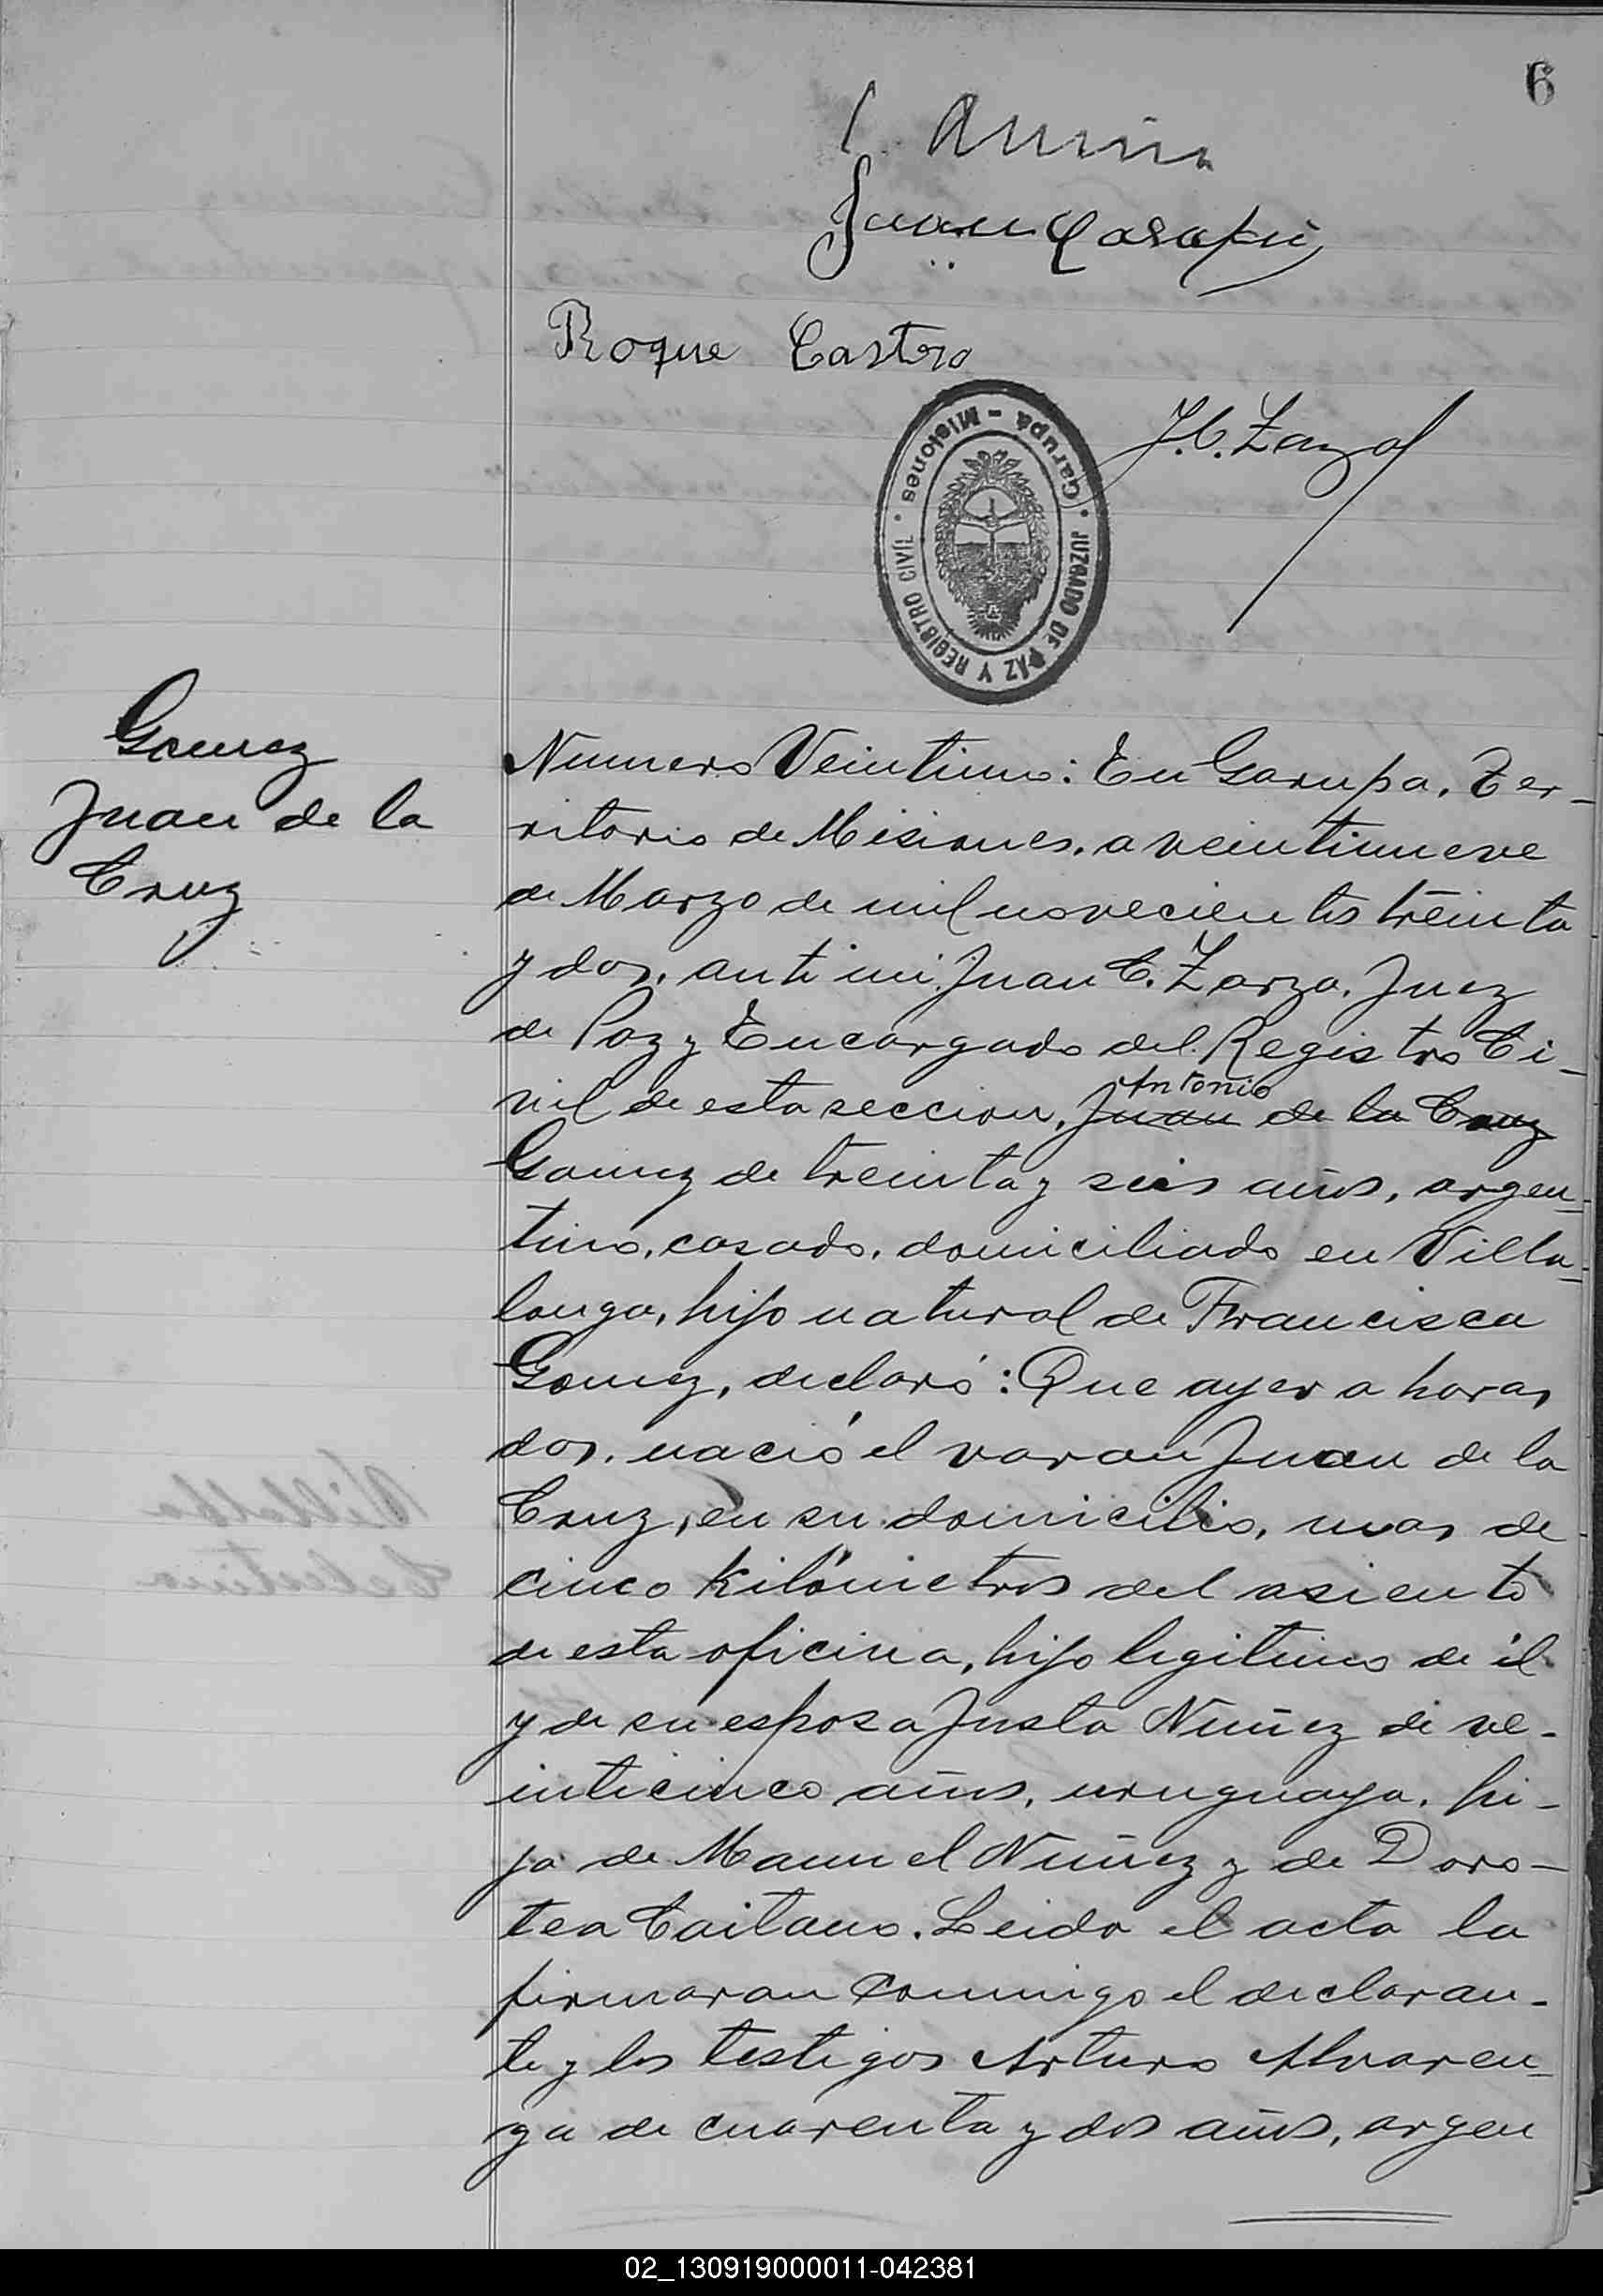 6
Juan
Roque Castro
J.C. Zarza
Garupá - Misiones
JUZGADO DE PAZ Y REGISTRO CIVIL
Gomez
Juan de la
Cruz
Numero Veintiuno: En Garupa, Ter-
ritorio de Misiones, a veintinueve
de Marzo de mil novecientos treinta
y dos, ante mi Juan C. Zarza, Juez
de Paz y Encargado del Registro Ci-
Antonio
vil de esta seccion, Juan de la Cruz
Gomez de treinta y seis años, argen-
tino, casado, domiciliado en Villa-
longa, hijo natural de Francisca
Gomez, declaró: Que ayer a horas
dos, nació el varon Juan de la
Cruz, en su domicilio, mas de
cinco kilómetros del asiento
de esta oficina, hijo legitimo de él
y de su esposa Justa Nuñez de ve-
inticinco años, uruguaya, hi-
ja de Manuel Nuñez y de Doro-
tea Caitano. Leida el acta la
firmaran conmigo el declaran-
te y los testigos Arturo Alvaren-
ga de cuarenta y dos años, argen
02_130919000011-042381